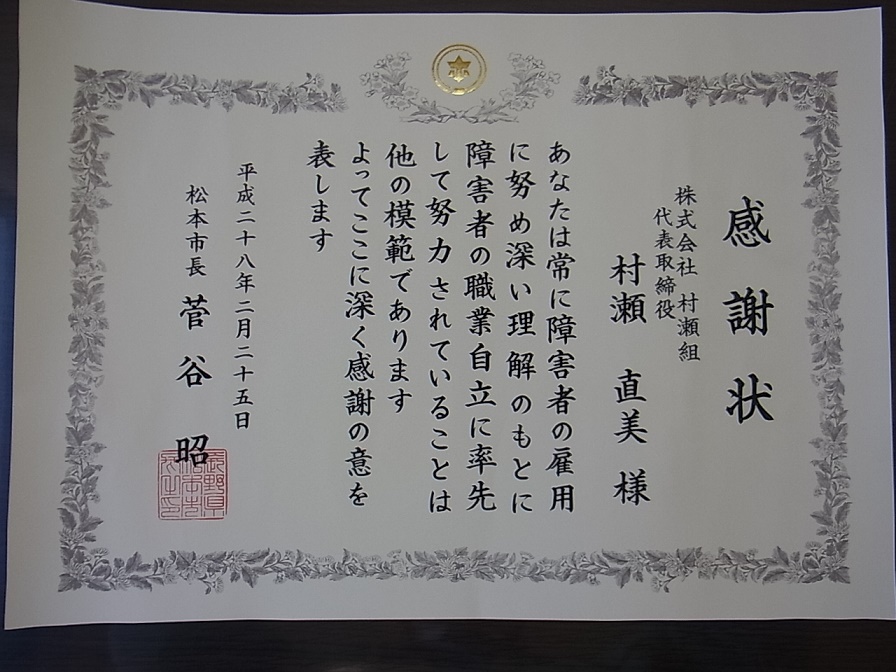 感謝状
株式会社 村瀬組
代表取締役
村瀬 直美 様
あなたは常に障害者の雇用
に努め深い理解のもとに
障害者の職業自立に率先
して努力されていることは
他の模範であります
よってここに深く感謝の意を
表します
平成二十八年二月二十五日
松本市長 菅谷 昭